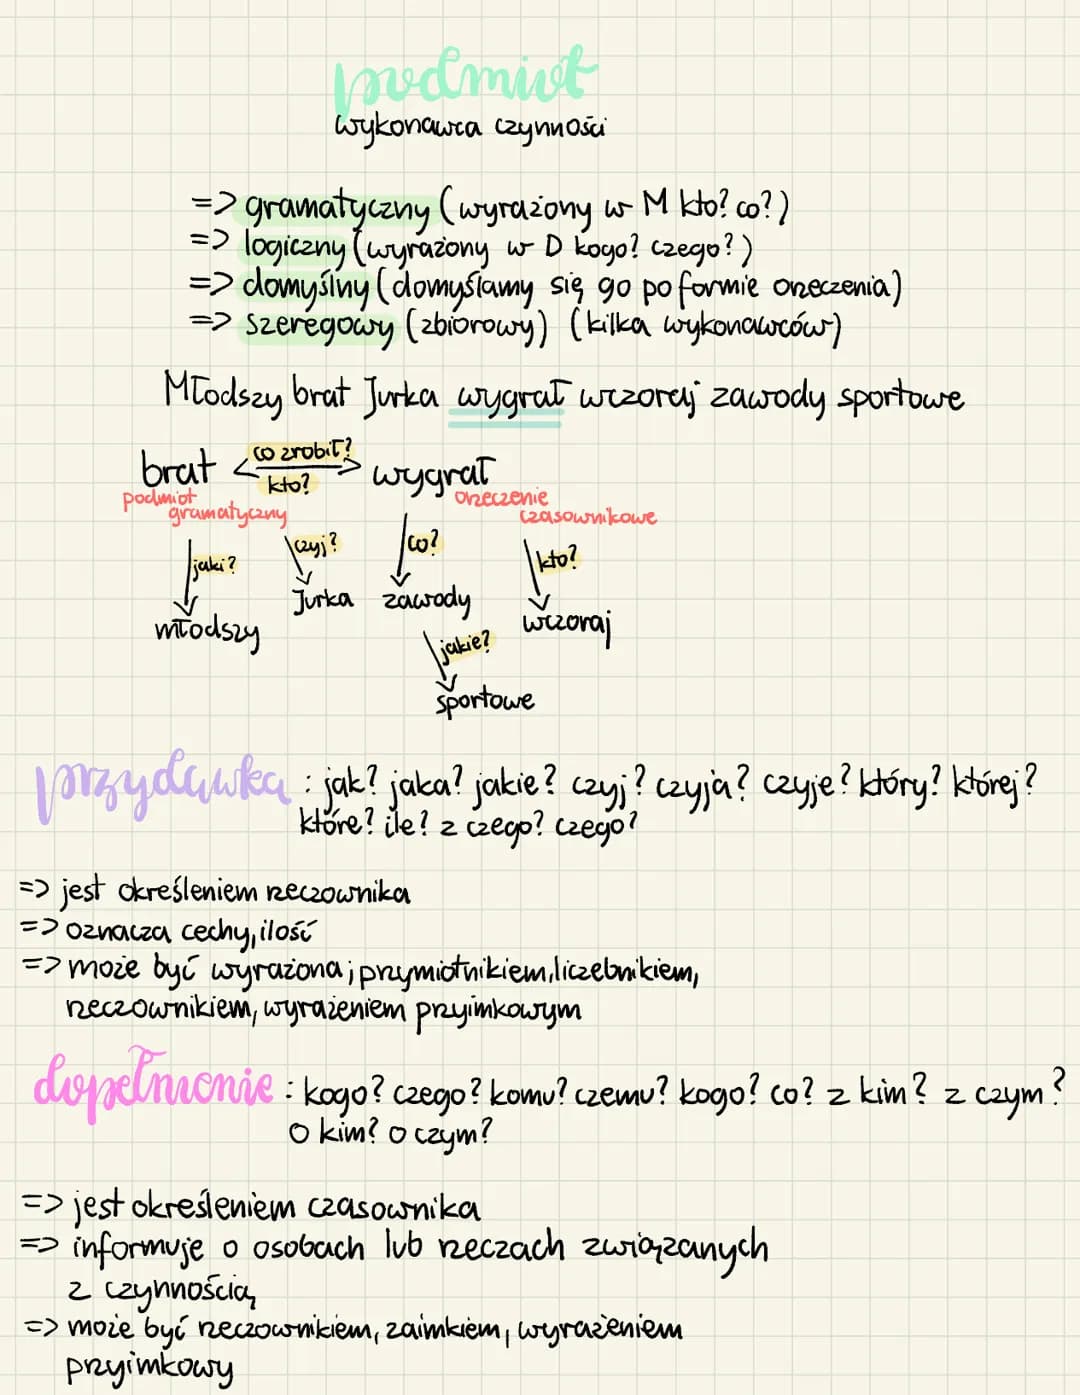 podmiot
wykonawca czynności
=> gramatyczny (wyrażony w M kto? co?)
=> logiczny (wyrażony w D kogo? czego?)
=> domyślny (domyślamy się go po formie orzeczenia)
=> szeregowy (zbiorowy) (kilka wykonawców)
Młodszy brat Jurka wygrał wczoraj zawody sportowe
brat co zrobił? kto? wygrał
podmiot gramatyczny orzeczenie czasownikowe
jaki? czyj? co? kto?
młodszy Jurka zawody wczoraj
jakie?
sportowe
przydawka : jak? jaka? jakie? czyj? czyja? czyje? który? której?
które? ile? z czego? czego?
=> jest określeniem rzeczownika
=> oznacza cechy, ilość
=> może być wyrażona; przymiotnikiem, liczebnikiem,
rzeczownikiem, wyrażeniem przyimkowym
dopełnienie : kogo? czego? komu? czemu? kogo? co? z kim? z czym?
o kim? o czym?
=> jest określeniem czasownika
=> informuje o osobach lub rzeczach związanych
z czynnością
=> może być rzeczownikiem, zaimkiem, wyrażeniem
przyimkowy